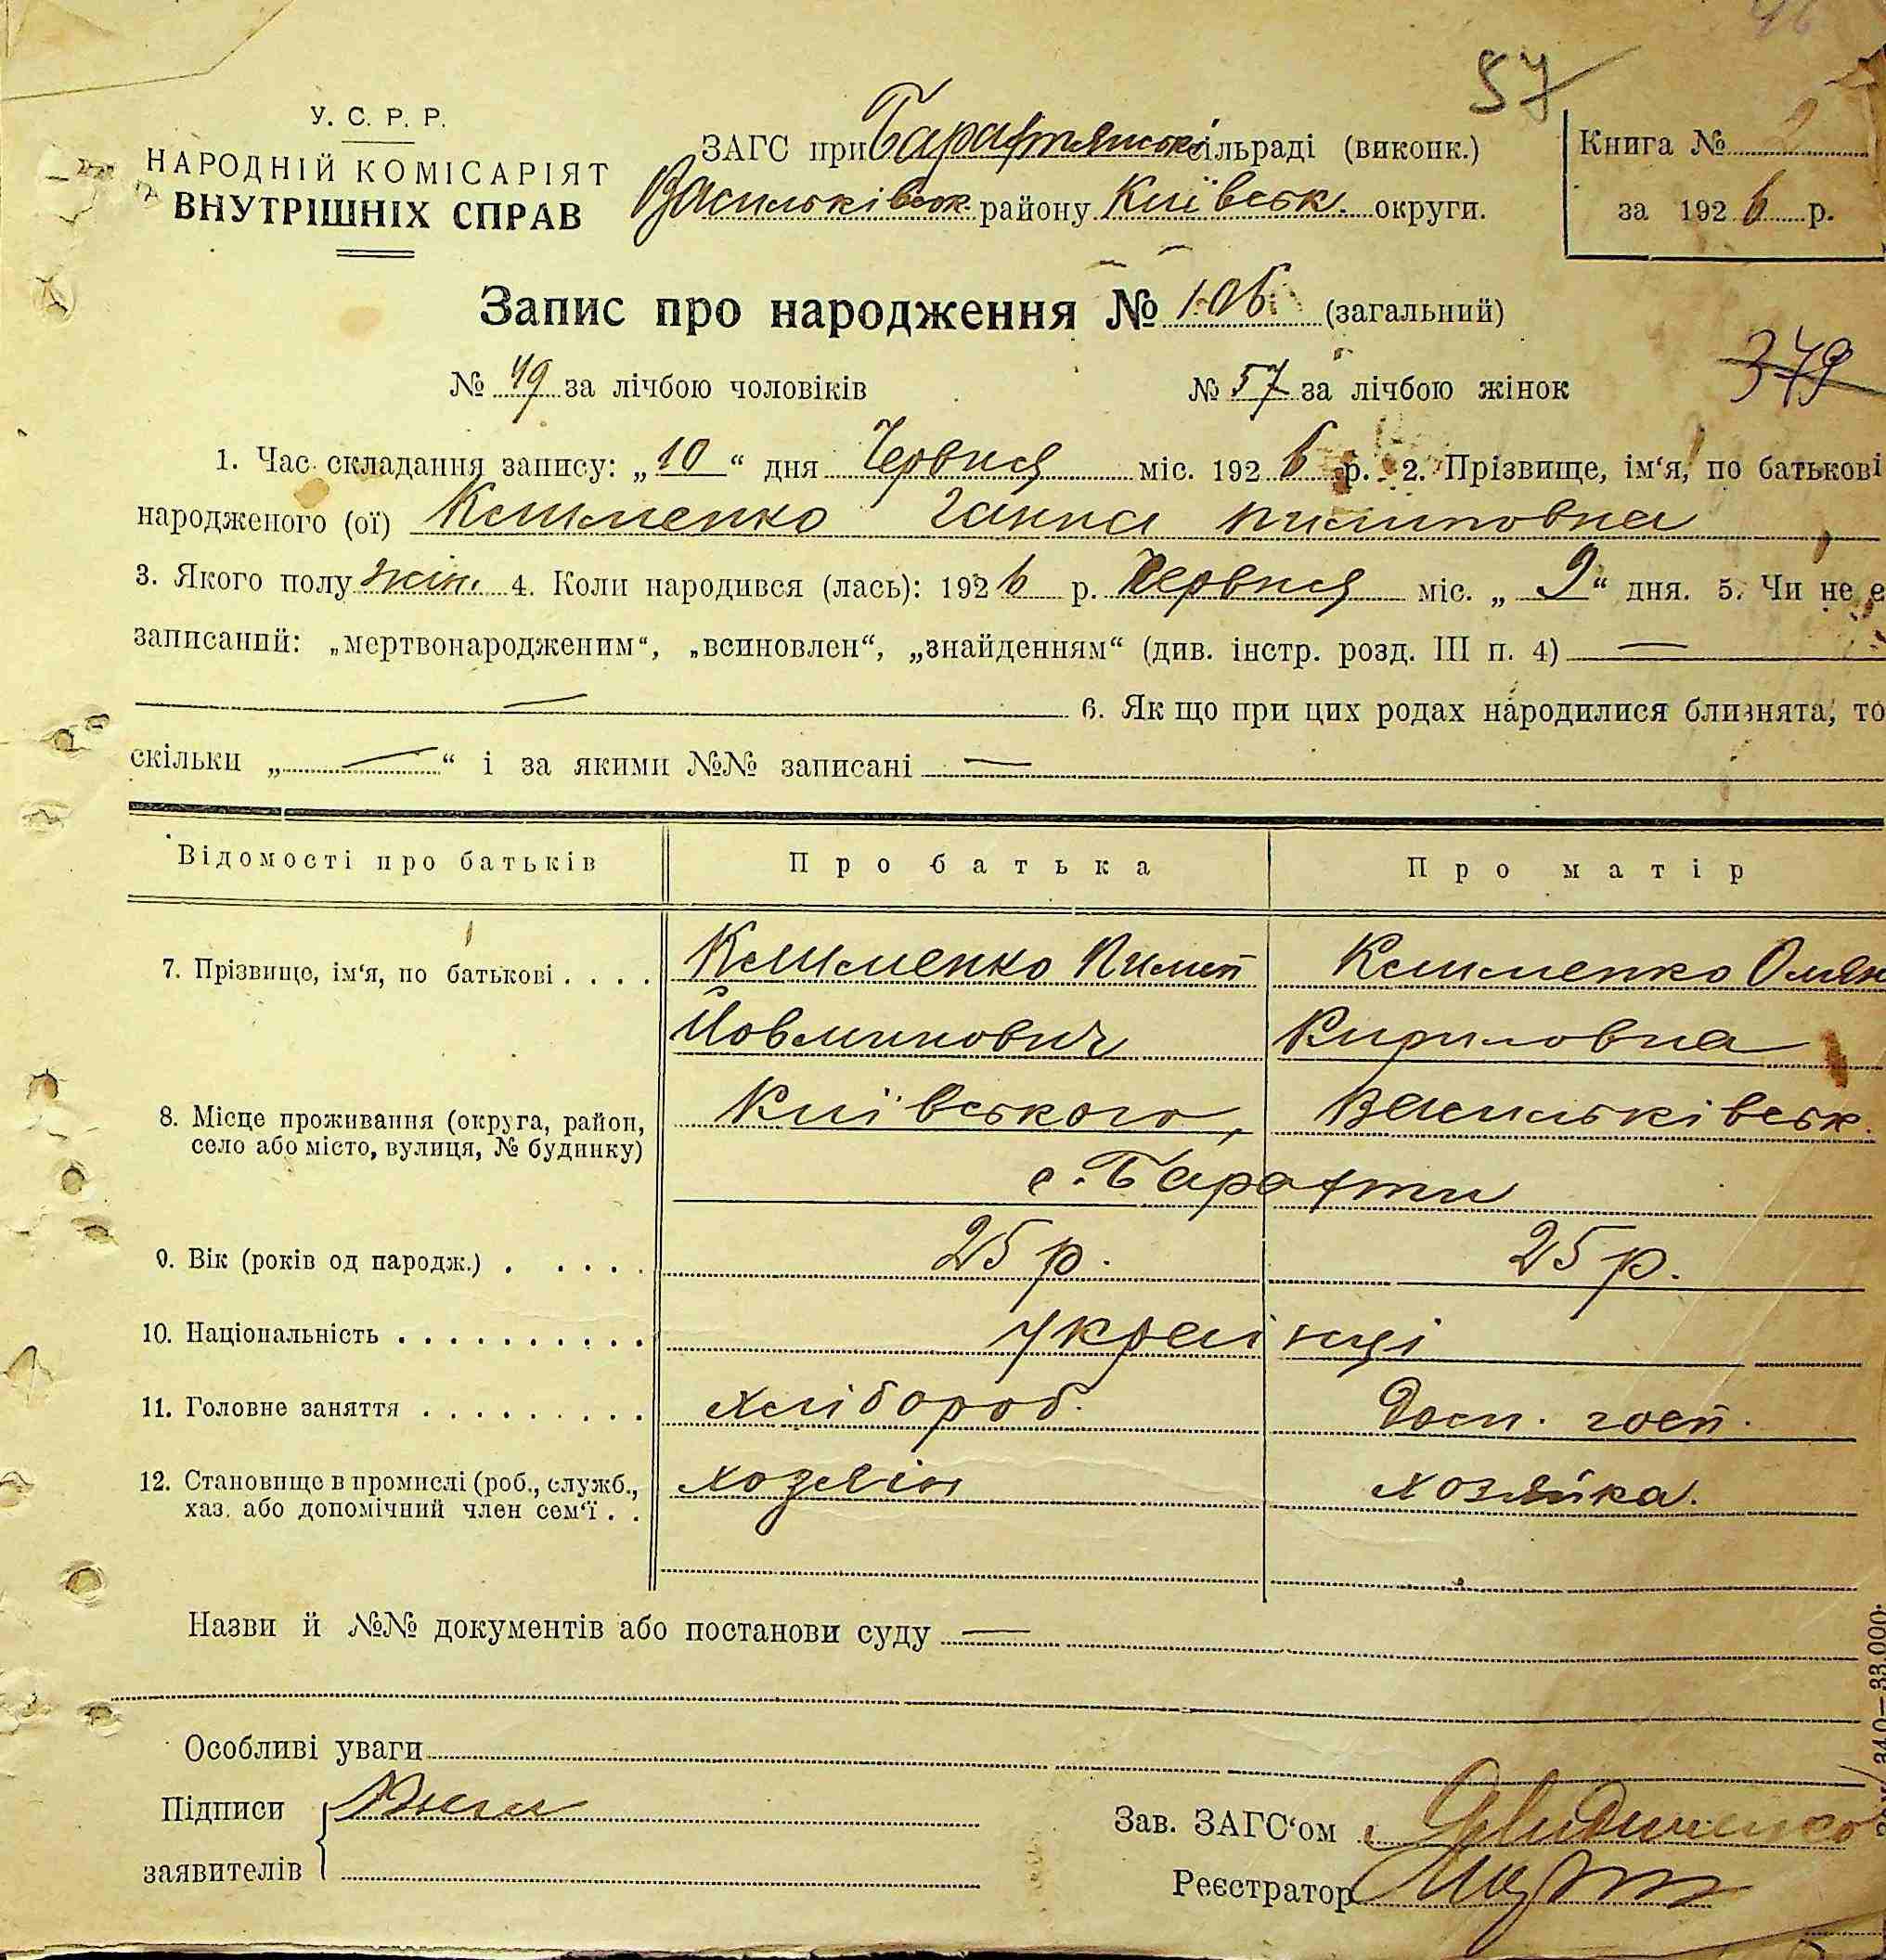 57
У. С. Р. Р.
НАРОДНІЙ КОМІСАРІЯТ
ВНУТРІШНІХ СПРАВ
ЗАГС при Барахтянськ сільраді (виконк.)
Васильківськ району Київськ. округи.
Книга № 2
за 1926 р.
Запис про народження № 106 (загальний)
№ 49 за лічбою чоловіків № 57 за лічбою жінок
379
1. Час складання запису: „10“ дня Червня міс. 1926 р. 2. Прізвище, ім‘я, по батькові
народженого (ої) Клименко Ганна Пилиповна
3. Якого полу жін. 4. Коли народився (лась): 1926 р. Червня міс. „9“ дня. 5. Чи не є
записаний: „мертвонародженим“, „всиновлен“, „знайденням“ (див. інстр. розд. III п. 4) —
— 6. Як що при цих родах народилися близнята, то
скільки „—“ і за якими №№ записані —
Відомості про батьків Про батька Про матір
7. Прізвище, ім‘я, по батькові . . . . Клименко Пилип Клименко Олян
Йовхимович Кириловна
8. Місце проживання (округа, район, Київського, Васильківськ.
село або місто, вулиця, № будинку)
с. Барахти
9. Вік (років од народж.) . . . . . 25 р. 25 р.
10. Національність . . . . . . . . . . українці
11. Головне заняття . . . . . . . . . хлібороб. Дом. госп.
12. Становище в промислі (роб., служб., хозяїн хозяйка.
хаз. або допомічний член сем‘ї . .
Назви й №№ документів або постанови суду —
Особливі уваги
Підписи
заявителів
Зав. ЗАГС‘ом
Реєстратор
340—33.000.